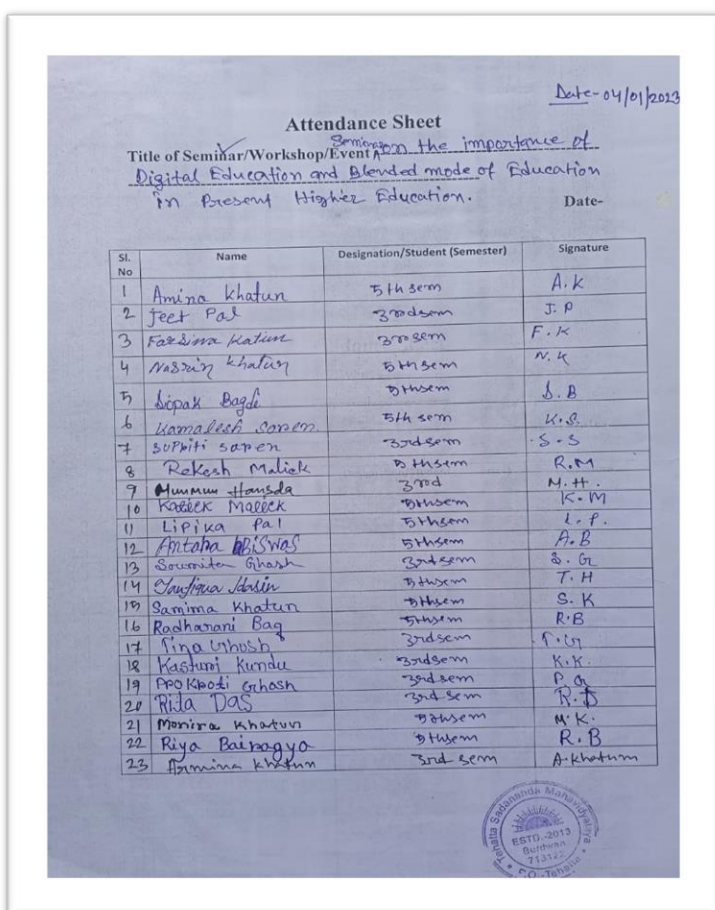 Date-04/01/2023
Attendance Sheet
Title of Seminar/Workshop/Event Seminar on the importance of
Digital Education and Blended mode of Education
in Present Higher Education. Date-
Sl. No Name Designation/Student (Semester) Signature
1 Amina Khatun 5th sem A.K
2 Jeet Pal 3rd sem J.P
3 Farsina Katun 3rd sem F.K
4 Nasrin Khatun 5th sem N.K
5 Dipak Bagdi 5th sem D.B
6 Kamalesh Soren 5th sem K.S.
7 Suphiti Saren 3rd sem S.S
8 Rekesh Malick 5th sem R.M
9 Munmun Hansda 3rd M.H.
10 Maleek 5th sem K.M
11 Lipika Pal 5th sem L.P.
12 Antara Biswas 5th sem A.B
13 Soumita Ghosh 3rd sem S.G
14 Taufiqua Hasin 5th sem T.H
15 Samima Khatun 5th sem S.K
16 Radharani Bag 5th sem R.B
17 Tina Ghosh 3rd sem T.G
18 Kasturi Kundu 3rd sem K.K.
19 Ghosh 3rd sem P.G
20 Rita Das 3rd sem R.D
21 Monira Khatun 5th sem M.K.
22 Riya Bairagya 5th sem R.B
23 Armina Khatun 3rd sem A.Khatun
Tehatta Sadananda Mahavidyalaya
ESTD.-2013
Burdwan